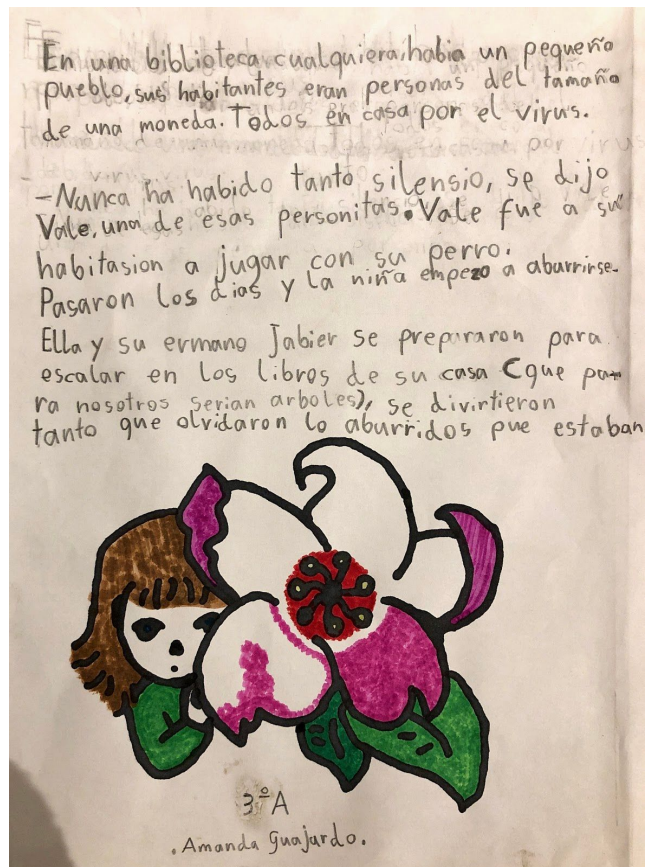 En una biblioteca cualquiera habia un pequeño
pueblo, sus habitantes eran personas del tamaño
de una moneda. Todos en casa por el virus.
-Nunca ha habido tanto silensio, se dijo
Vale, una de esas personitas. Vale fue a su
habitasion a jugar con su perro.
Pasaron los dias y la niña empezo a aburrirse.
Ella y su ermano Jabier se prepararon para
escalar en los libros de su casa (que pa-
ra nosotros serian arboles), se divirtieron
tanto que olvidaron lo aburridos pue estaban
3ºA
.Amanda Guajardo.